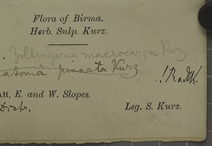 Flora of Birma.
Herb. Sulp. Kurz.
Zollingeria macrocarpa Kurz
pinnata Kurz
! Radlk.
AH, E. and W. Slopes.
Leg. S. Kurz.